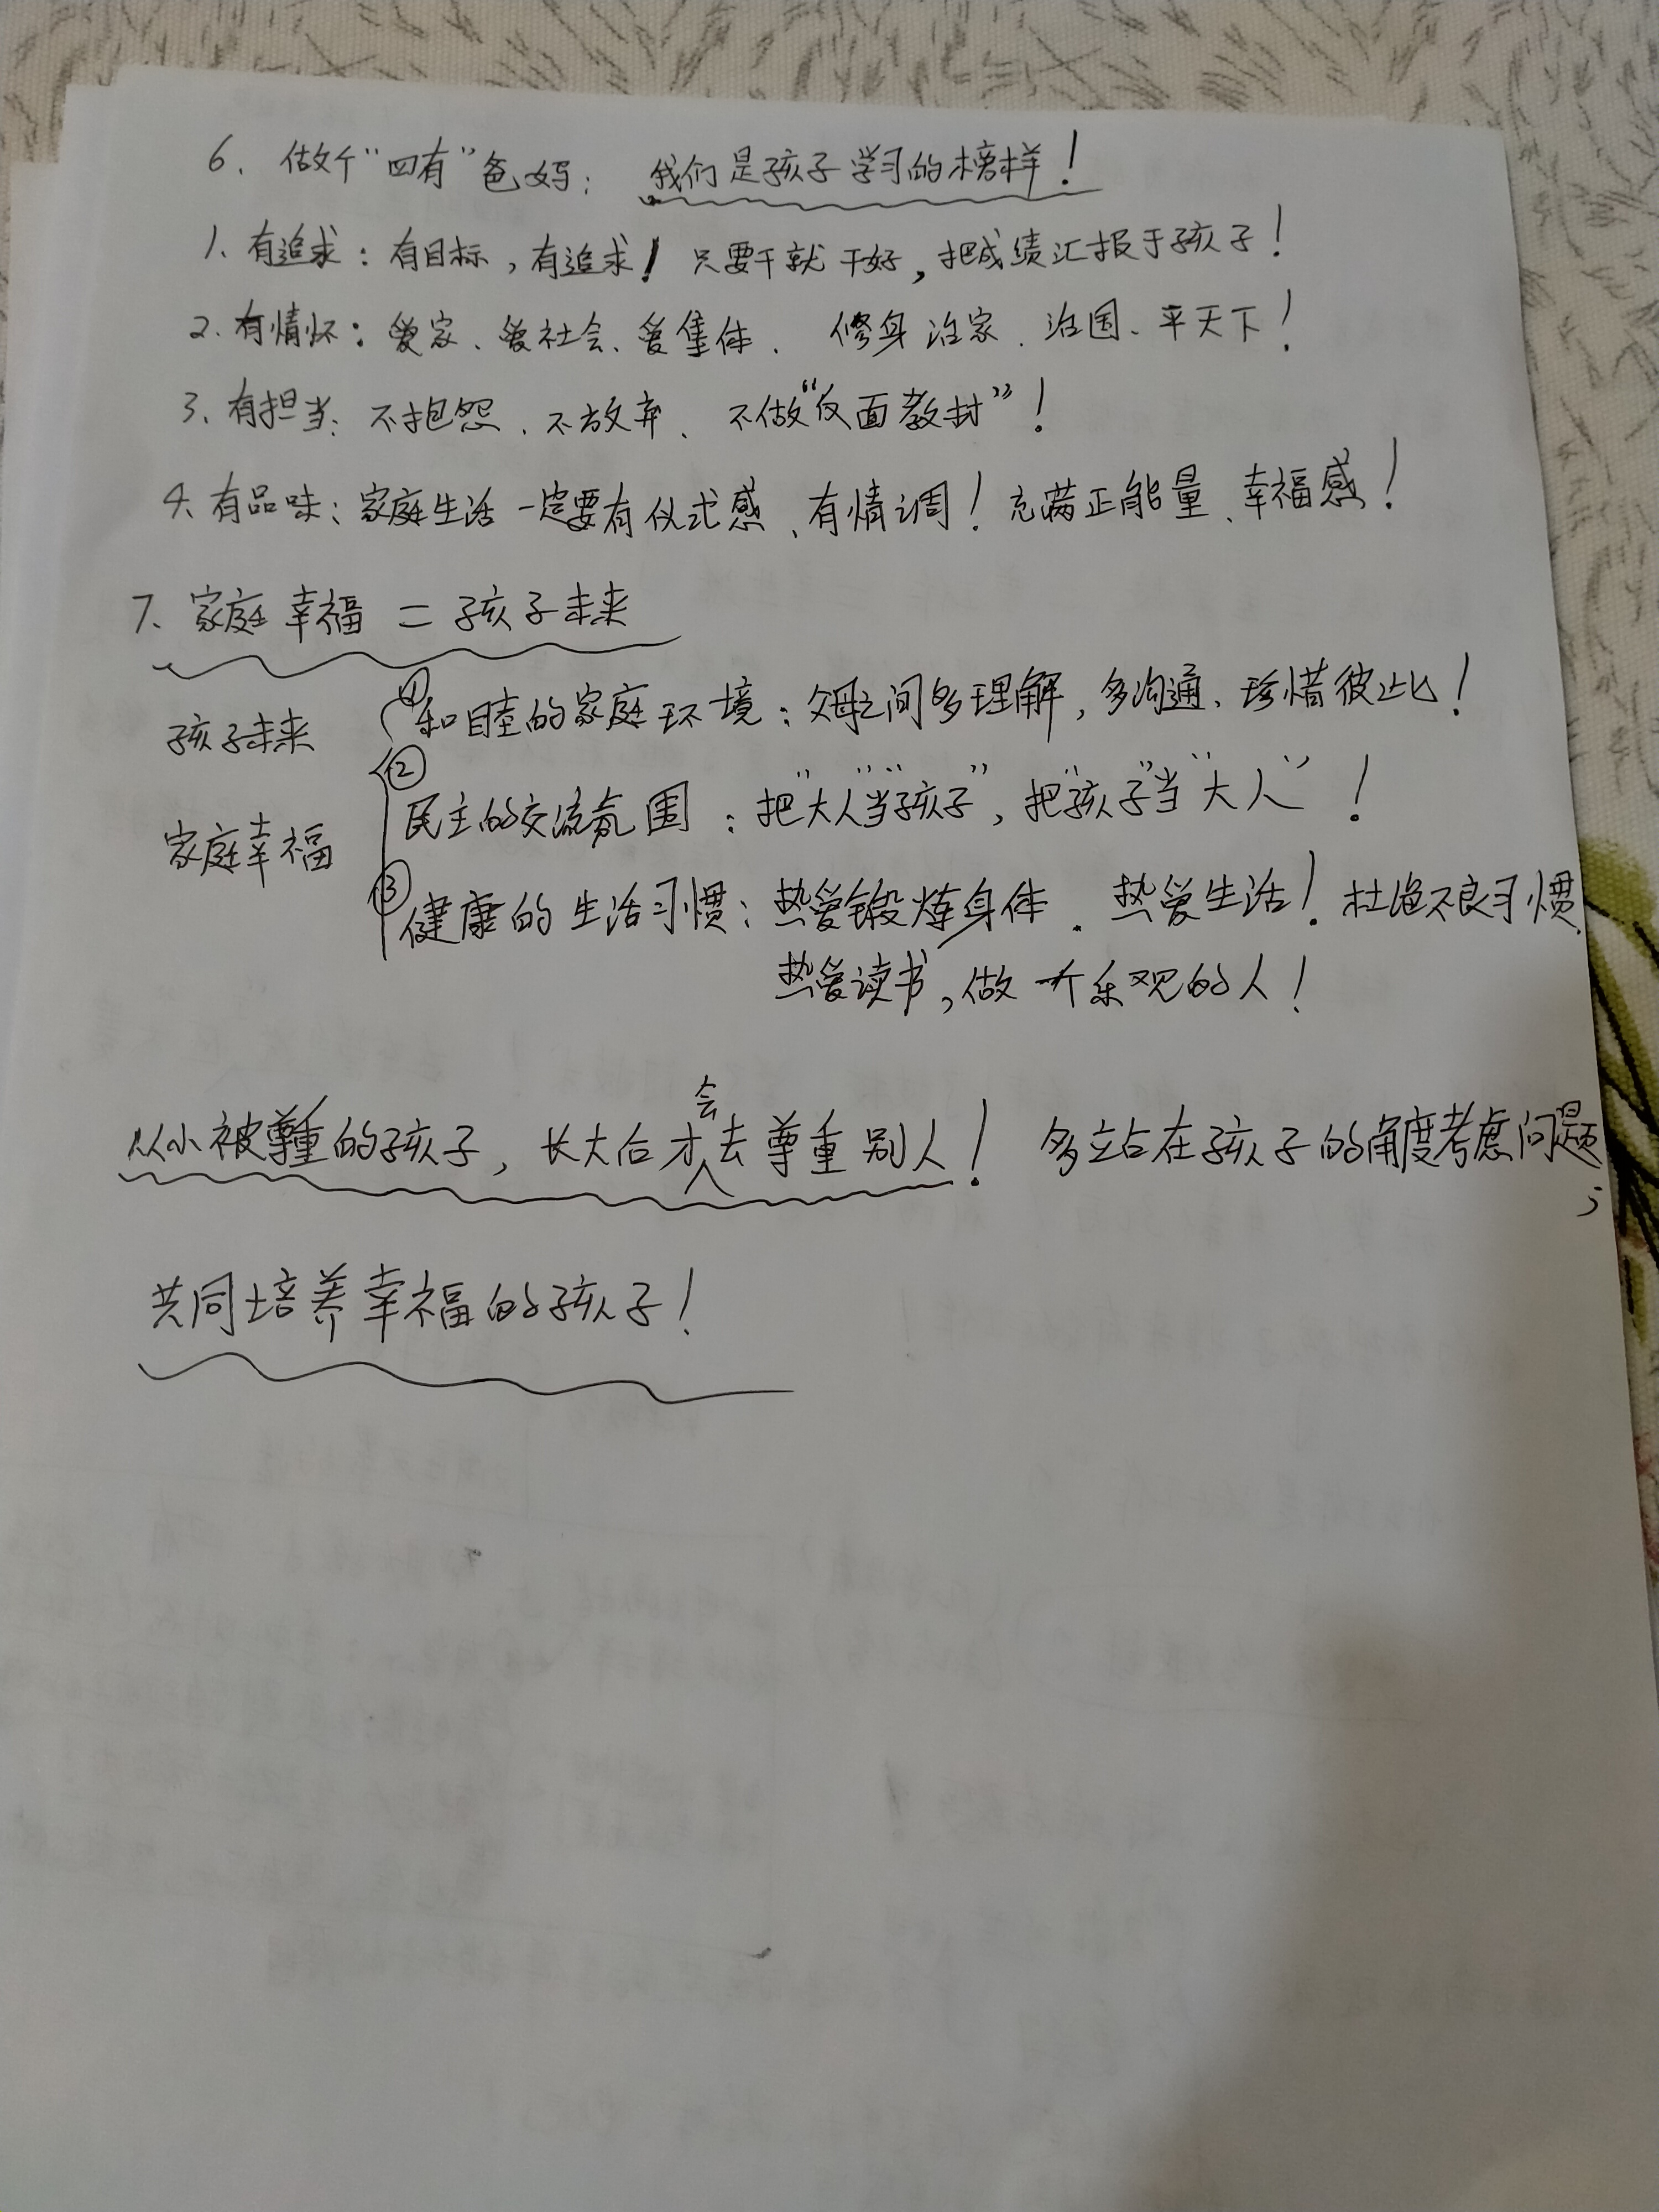 6. 做个“四有”爸妈: 我们是孩子学习的榜样!
1、有追求:有目标,有追求! 只要干就干好,把成绩汇报于孩子!
2.有情怀:爱家、爱社会、爱集体. 修身治家、治国、平天下!
3、有担当:不抱怨、不放弃、不做“反面教材”!
4、有品味:家庭生活一定要有仪式感、有情调!充满正能量、幸福感!
7、家庭幸福=孩子未来
①和睦的家庭环境:父母之间多理解,多沟通、珍惜彼此!
孩子未来
②民主的交流氛围:把“大人”当“孩子”,把“孩子”当“大人”!
家庭幸福
③健康的生活习惯:热爱锻炼身体.热爱生活!杜绝不良习惯.
热爱读书,做一个乐观的人!
从小被尊重的孩子,长大后才会去尊重别人! 多站在孩子的角度考虑问题;
共同培养幸福的孩子!